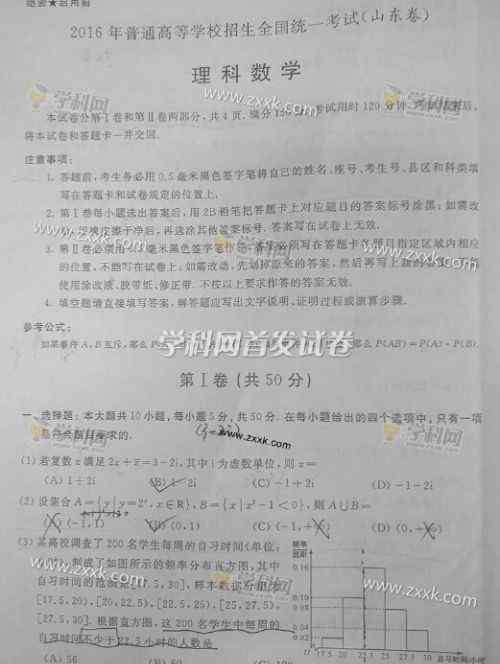 绝密★启用前
2016年普通高等学校招生全国统一考试(山东卷)
理科数学
本试卷分第Ⅰ卷和第Ⅱ卷两部分,共4页。满分150分。考试用时120分钟。考试结束后,
将本试卷和答题卡一并交回.
注意事项:
1. 答题前,考生务必用0.5毫米黑色签字笔将自己的姓名、座号、考生号、县区和科类填
写在答题卡和试卷规定的位置上.
2. 第Ⅰ卷每小题选出答案后,用2B铅笔把答题卡上对应题目的答案标号涂黑;如需改
动,用橡皮擦干净后,再选涂其他答案标号,答案写在试卷上无效.
3. 第Ⅱ卷必须用0.5毫米黑色签字笔作答,答案必须写在答题卡各题目指定区域内相应
的位置,不能写在试卷上;如需改动,先划掉原来的答案,然后再写上新的答案;不能
使用涂改液、胶带纸、修正带.不按以上要求作答的答案无效.
4. 填空题请直接填写答案,解答题应写出文字说明、证明过程或演算步骤.
参考公式:
如果事件A,B互斥,那么P P(AB)=P(A)·P(B).
学科网首发试卷
第Ⅰ卷(共50分)
一、选择题:本大题共10小题,每小题5分,共50分.在每小题给出的四个选项中,只有一项
是符合题目要求的.
(1) 若复数z满足2z+z̄=3-2i,其中i为虚数单位,则z=
(A) 1+2i (B) 1-2i (C) -1+2i (D) -1-2i
(2) 设集合A={y|y=2ˣ,x∈R},B={x|x²-1<0},则A∪B=
(A) (-1,1) (B) (0,1) (C) (-1,+∞) (D) (0,+∞)
(3) 某高校调查了200名学生每周的自习时间(单位:
制成了如图所示的频率分布直方图,其中
自习时间的范围是[17.5,30],样本数据分组为
[17.5,20),[20,22.5),[22.5,25),[25,27.5),
[27.5,30].根据直方图,这200名学生中每周的
自习时间不少于22.5小时的人数是
(A) 56 (B) 60
频率
组距
0.16
0.10
0.08
0.04
0.02
O 17.5 20 22.5 25 27.5 30 自习时间/小时
学科网
www.zxxk.com
学科网
www.zxxk.com
www.zxxk.com
www.zxxk.com
学科网
zxxk.com
学科网
www.zxxk.com
www.zxxk.com